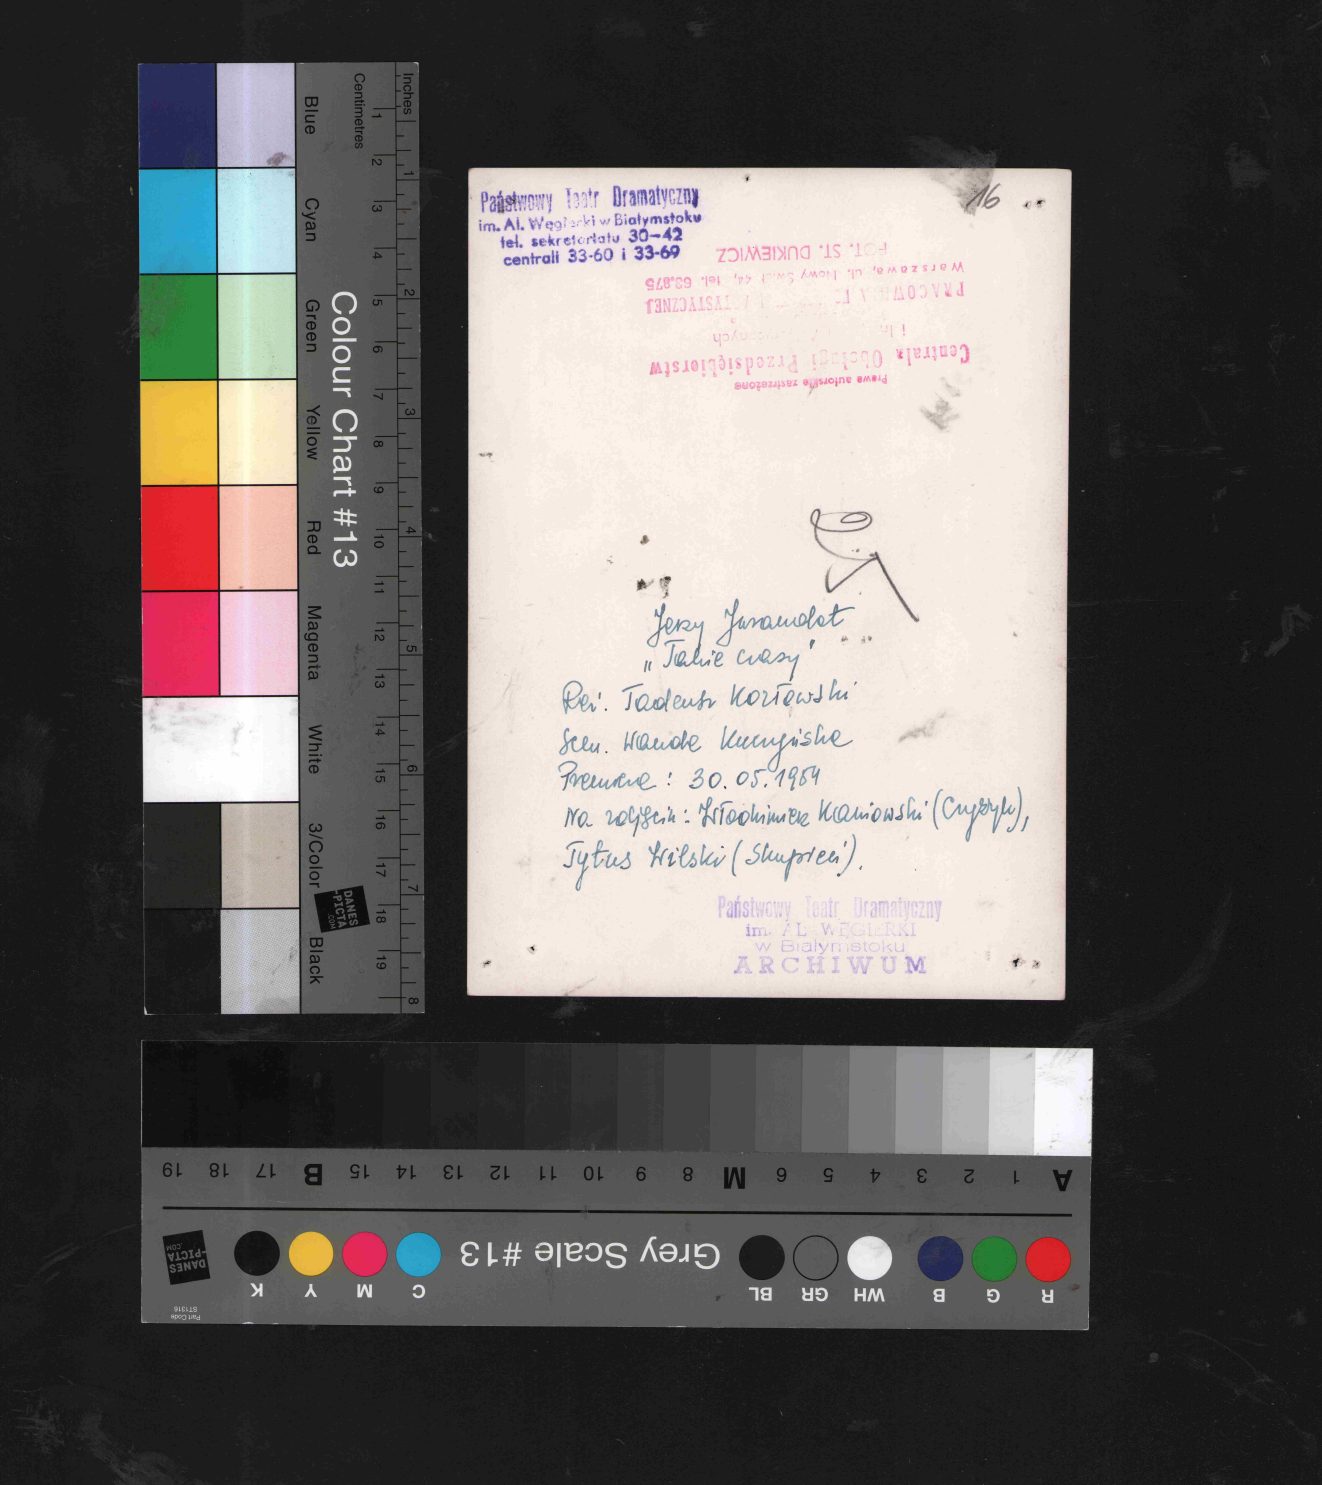 Inches
Centimetres
Blue
Cyan
Green
Yellow
Red
Magenta
White
3/Color
Black
Colour Chart #13
1 2 3 4 5 6 7 8 9 10 11 12 13 14 15 16 17 18 19
1 2 3 4 5 6 7 8
DANES
-PICTA
.COM
Państwowy Teatr Dramatyczny
im. Al. Węgierki w Białymstoku
tel. sekretariatu 30-42
centrali 33-60 i 33-69
16
Prawa autorskie zastrzeżone
Centrala Obsługi Przedsiębiorstw
i
PRACOWNIA
Warszawa, ul. Nowy Świat 44, tel. 63.875
FOT. ST. DUKIEWICZ
Jerzy Jurandot
„Takie czasy"
Reż. Tadeusz Kozłowski
Scen. Wanda
Premiera: 30.05.1954
Na zdjęciu: Włodzimierz Kaniowski (Czyżyk),
Tytus Wilski (Skupień).
Państwowy Teatr Dramatyczny
im. AL. WĘGIERKI
w Białymstoku
ARCHIWUM
A 1 2 3 4 5 6 M 8 9 10 11 12 13 14 15 B 17 18 19
R G B WH GR BL
Grey Scale #13
C M Y K
DANES
-PICTA
.COM
Part Code
ST1316